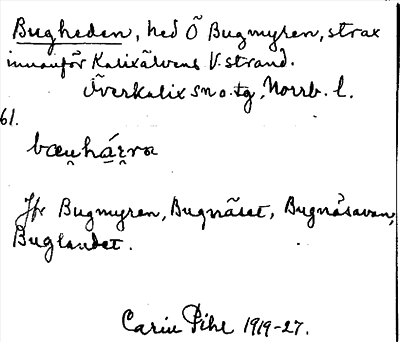 Bugheden, hed Ö Bugmyren, strax
innanför Kalixälvens V. strand.
Överkalix sn o. tg, Norrb. l.
61.
bæu̯há̱ɛ̯na
Jfr Bugmyren, Bugnäset, Bugnäsavan,
Buglandet.
Carin Pihl 1919-27.